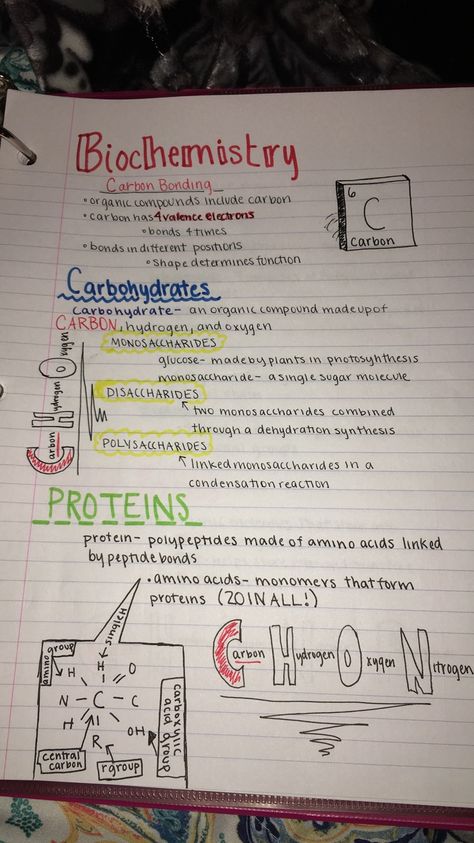 Biochemistry
Carbon Bonding
•organic compounds include carbon
•carbon has 4 valence electrons
•bonds 4 times
•bonds in different positions
•shape determines function
6
C
Carbon
Carbohydrates
carbohydrate- an organic compound made up of
CARBON, hydrogen, and oxygen
MONOSACCHARIDES
glucose- made by plants in photosyhthesis
monosaccharide- a single sugar molecule
DISACCHARIDES
two monosaccharides combined
through a dehydration synthesis
POLYSACCHARIDES
linked monosaccharides in a
condensation reaction
Carbon Hydrogen Oxygen
PROTEINS
protein- polypeptides made of amino acids linked
by peptide bonds
•amino acids- monomers that form
proteins (20 IN ALL!)
Carbon Hydrogen Oxygen Nitrogen
single H
amino group
H H O
N - C - C
H R OH
central carbon
rgroup
carboxylic acid group